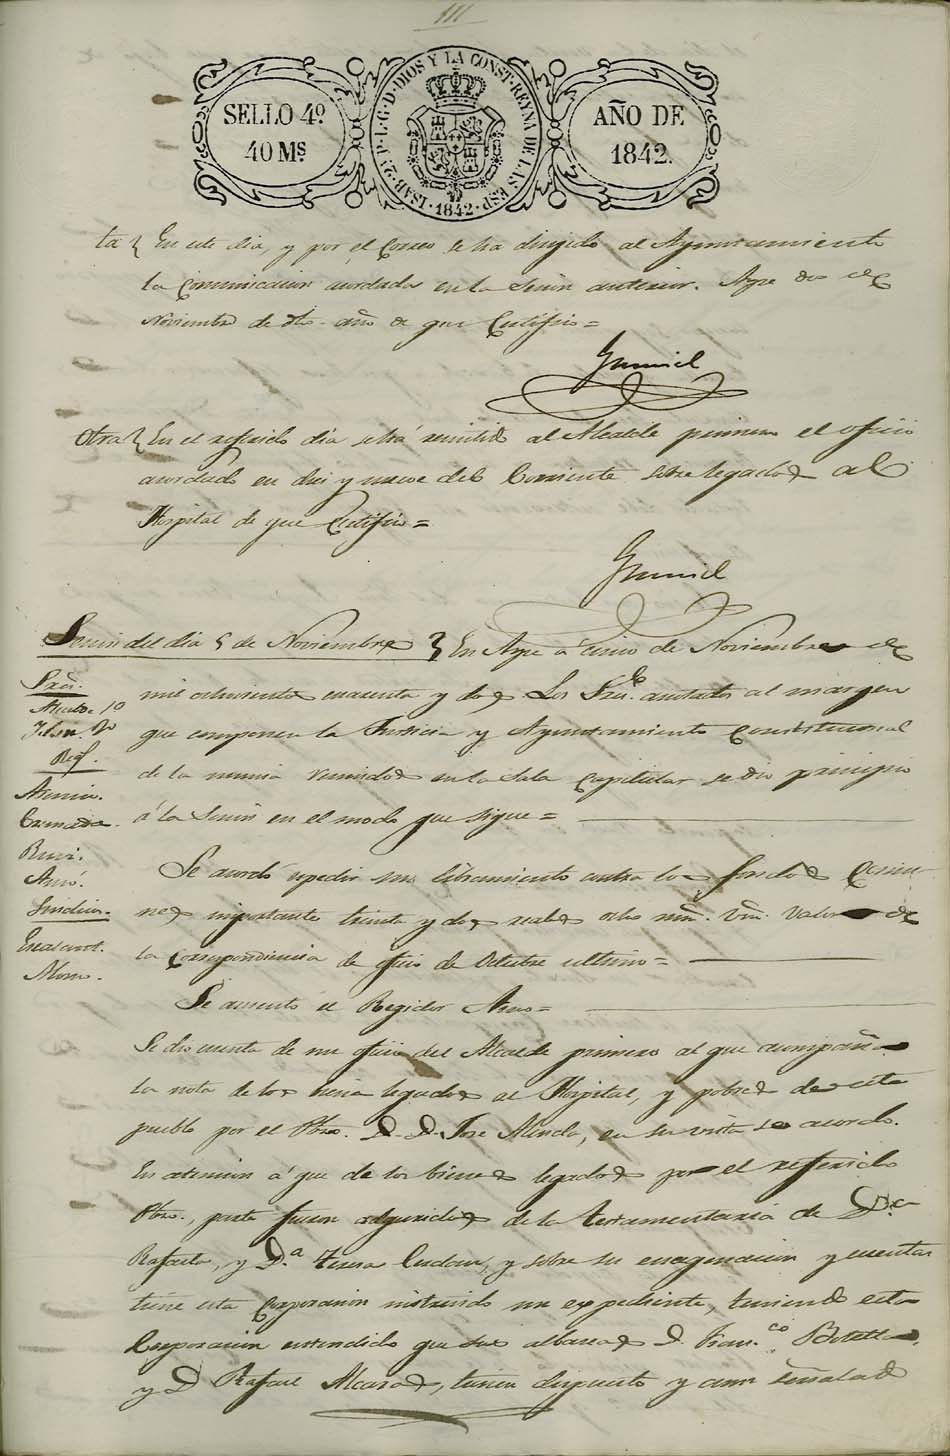 111
SELLO 4º
40 Ms
ISAB. 2ª P. L. G. D. DIOS Y LA CONST. REYNA DE LAS ESP. 1842.
AÑO DE
1842.
ta} En este dia, y por el Correo se ha dirigido al Ayuntamiento
la Comunicacion acordada en la Sesion anterior. Aspe
Noviembre de dho. año de que Certifico=
Otra} En el referido dia se ha remitido al Alcalde primero el oficio
acordado en diez y nueve del Corriente sobre legados al
Hospital de que Certifico=
Sesion del dia 5 de Noviembre} En Aspe á cinco de Noviembre de
Sres.
Alcalde 1º
Regs.
Carnada.
Sindicos.
mil ochocientos cuarenta y dos Los Sres. anotados al margen
que componen la Justicia y Ayuntamiento Constitucional
de la misma reunidos en la Sala Capitular se dio principio
á la Sesion en el modo que sigue=
Se acordó expedir un libramiento contra los fondos Comu
nes importante treinta y dos reales mrs. vn. valor de
la correspondencia de oficio de Octubre ultimo=
Se ausentó el Regidor
Se dio cuenta de un oficio del Alcalde primero al que acompaña
la nota de los bienes legados al Hospital, y pobres de este
pueblo por el Pbro. D. D. Jose en su vista se acordo.
En atencion á que de los bienes legados por el referido
Pbro., parte fueron adquiridos de la testamentaria de Dª.
Rafaela, y D.ª Teresa y sobre su enagenacion y cuentas
tiene esta Corporacion instruido un expediente, teniendo esta
Corporacion entendido que sus albaceas D. Fran.co Botella,
y D Rafael Alcaras, tienen dispuesto y aun señalado